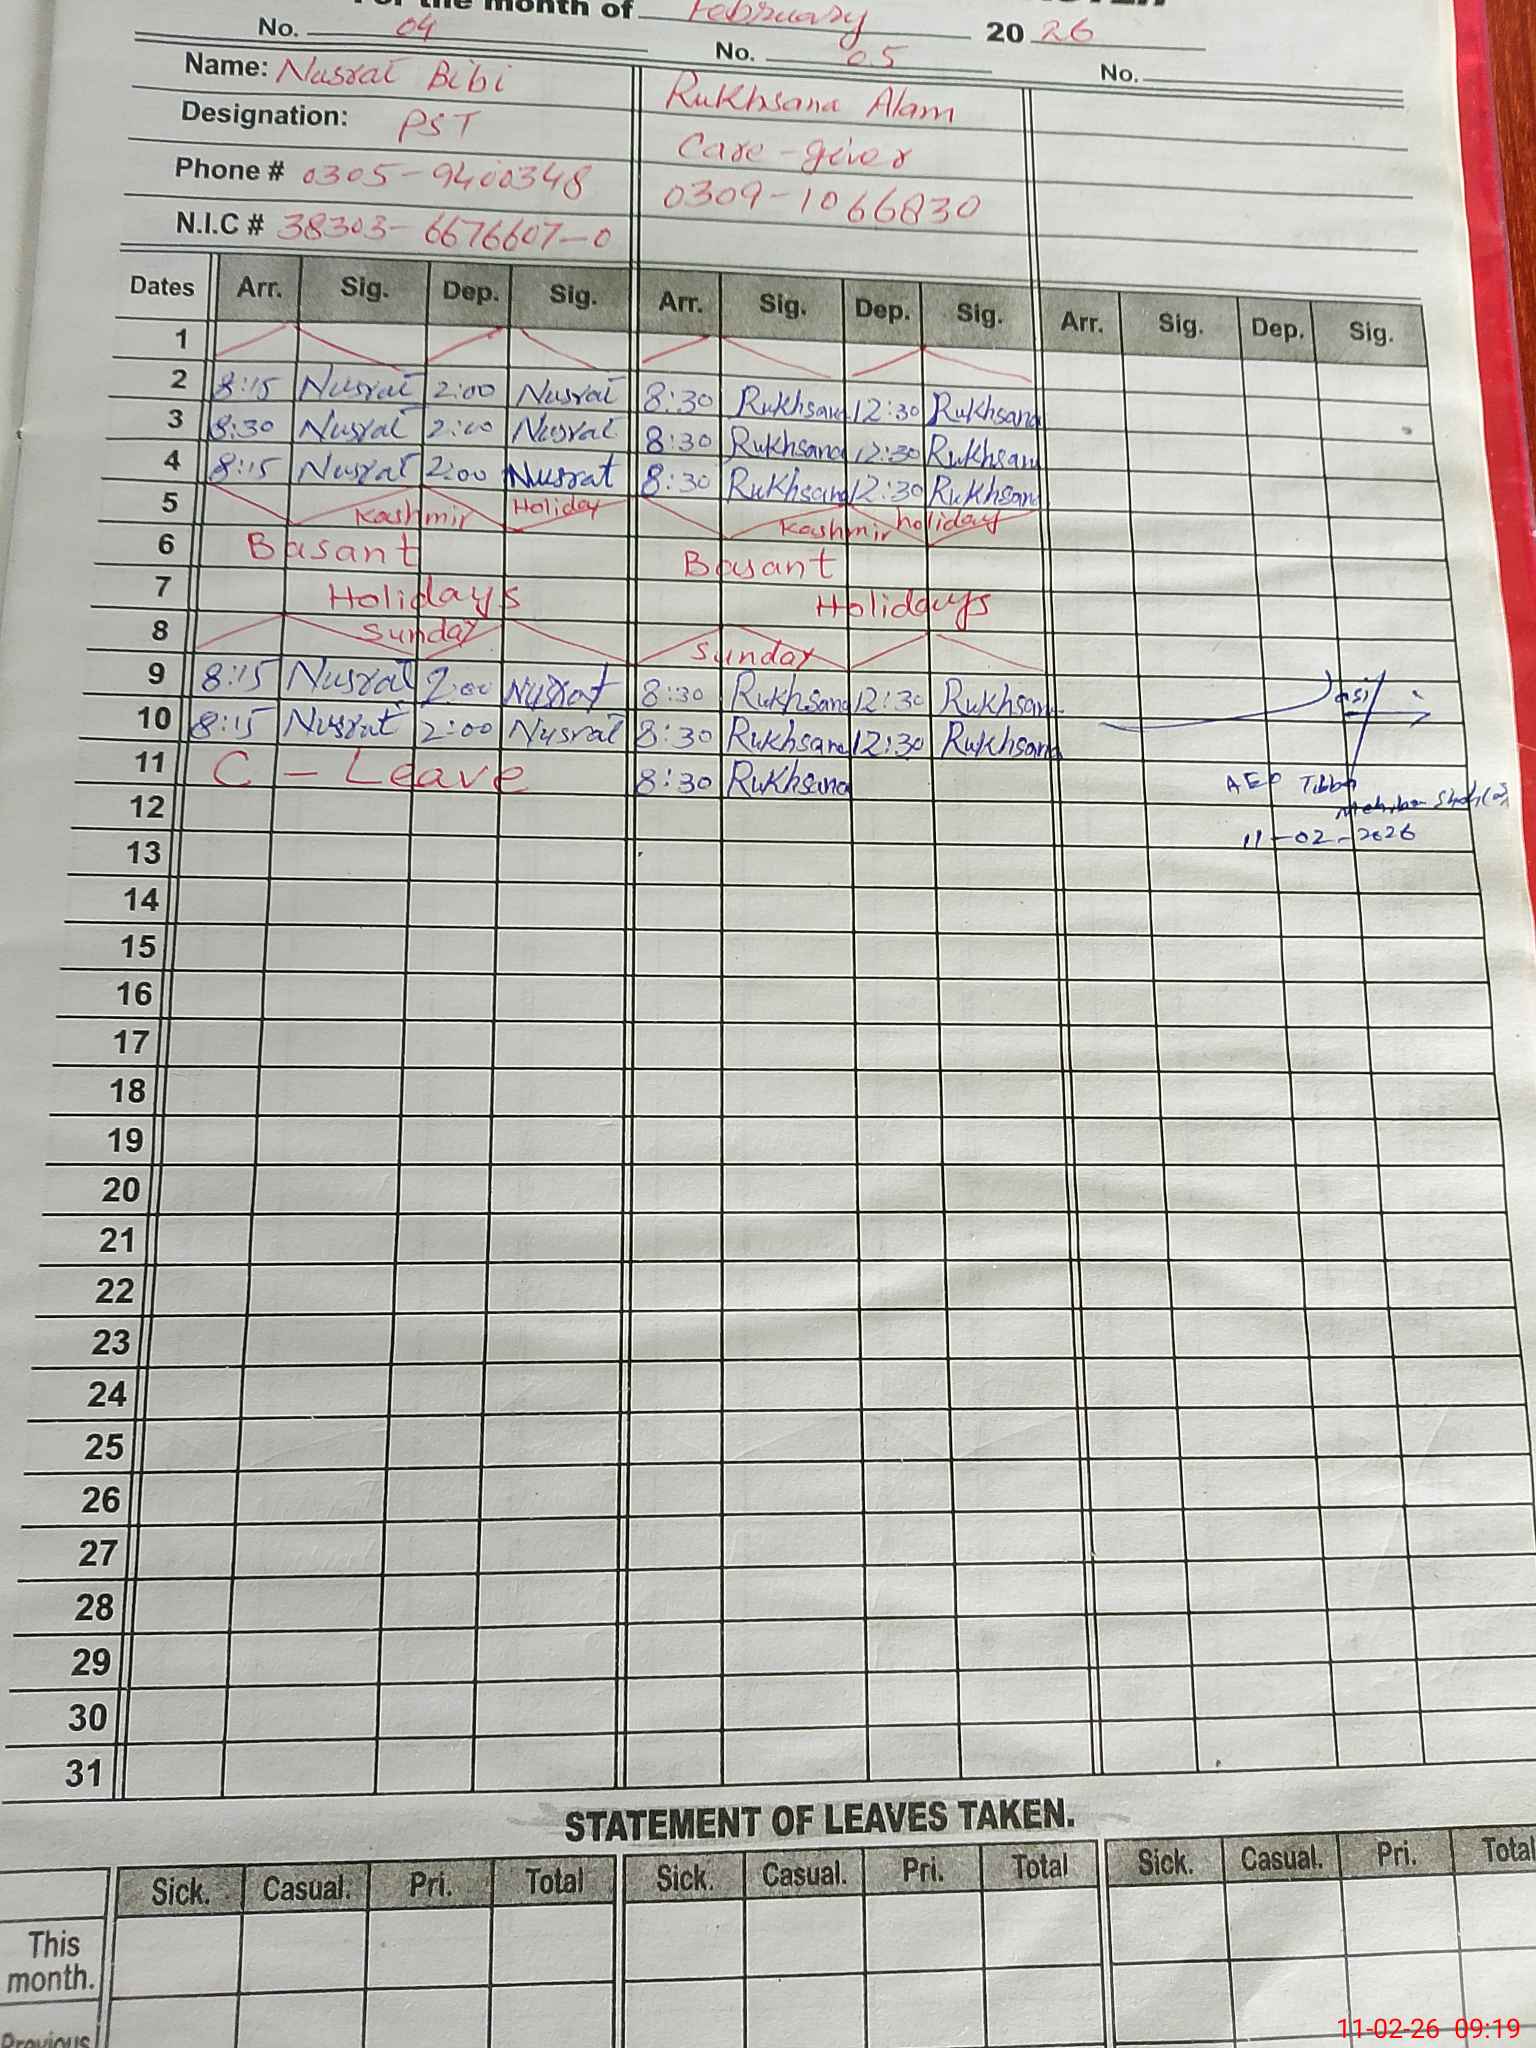 For the month of February 2026
No. 04 No. 05 No.
Name: Nusrat Bibi Rukhsana Alam
Designation: PST Care-giver
Phone # 0305-9400348 0309-1066830
N.I.C # 38303-6676607-0
Dates Arr. Sig. Dep. Sig. Arr. Sig. Dep. Sig. Arr. Sig. Dep. Sig.
1
2 8:15 Nusrat 2:00 Nusrat 8:30 Rukhsana 12:30 Rukhsana
3 8:30 Nusrat 2:00 Nusrat 8:30 Rukhsana 12:30 Rukhsana
4 8:15 Nusrat 2:00 Nusrat 8:30 Rukhsana 12:30 Rukhsana
5 Kashmir Holiday Kashmir holiday
6 Basant Basant
7 Holidays Holidays
8 Sunday Sunday
9 8:15 Nusrat 2:00 Nusrat 8:30 Rukhsana 12:30 Rukhsana
10 8:15 Nusrat 2:00 Nusrat 8:30 Rukhsana 12:30 Rukhsana
11 C - Leave 8:30 Rukhsana AEO Tibba
12 11-02-2026
13
14
15
16
17
18
19
20
21
22
23
24
25
26
27
28
29
30
31
STATEMENT OF LEAVES TAKEN.
Sick. Casual. Pri. Total Sick. Casual. Pri. Total Sick. Casual. Pri. Total
This month.
Previous
11-02-26 09:19